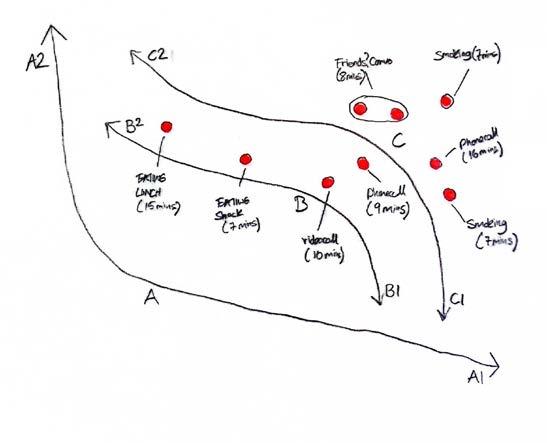 A2
C2
Friends' Convo
(8mins)
Smoking (7mins)
B2
C
Phonecall
(16mins)
EATING
LUNCH
(15mins)
EATING
Snack
(7mins)
B
Phonecall
(9mins)
Smoking
(7mins)
videocall
(10mins)
A
B1
C1
A1